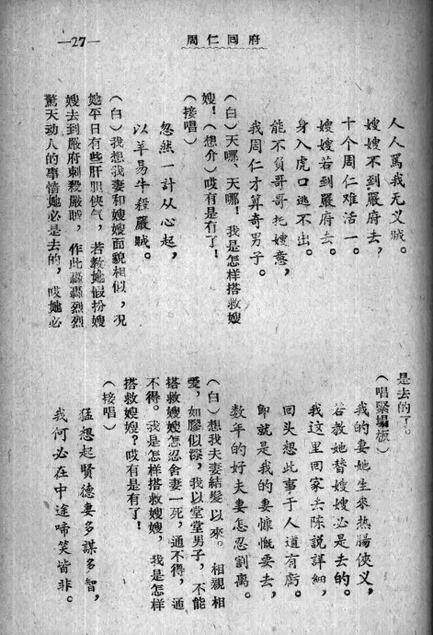 —27—
周仁囘府
人人罵我无义贼。
嫂嫂不到嚴府去，
十个周仁难活一。
嫂嫂若到嚴府去。
身入虎口逃不出。
能不負哥哥托嫂意，
我周仁才算奇男子。
（白）天哪、天哪！我是怎样搭救嫂
嫂！（想介）哎有是有了！
（接唱）
忽然一計从心起，
以羊易牛殺嚴贼。
（白）我想我妻和嫂嫂面貌相似，况
她平日有些肝胆俠气，若教她假扮嫂
嫂去到嚴府刺殺嚴贼，作此轟轟烈烈
驚天动人的事情她必是去的，哎她必
是去的了。
（唱緊塌板）
我的妻她生来热腸俠义，
若教她替嫂嫂必是去的。
我这里囘家去陈說詳細，
囘头想此事于人道有虧。
卽就是我的妻慷慨要去，
数年的好夫妻怎忍割离。
（白）想我夫妻結髮以來。相親相
愛，如膠似漆，我以堂堂男子，不能
搭救嫂嫂怎忍舍妻一死，通不得，通
不得。我是怎样搭救嫂嫂，我是怎样
搭救嫂嫂？哎有是有了！
（接唱）
猛想起賢德妻多謀多智，
我何必在中途啼笑皆非。